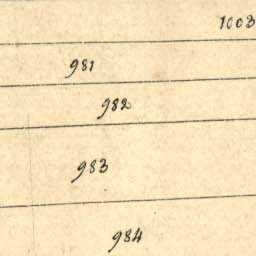 1003
981
982
983
984